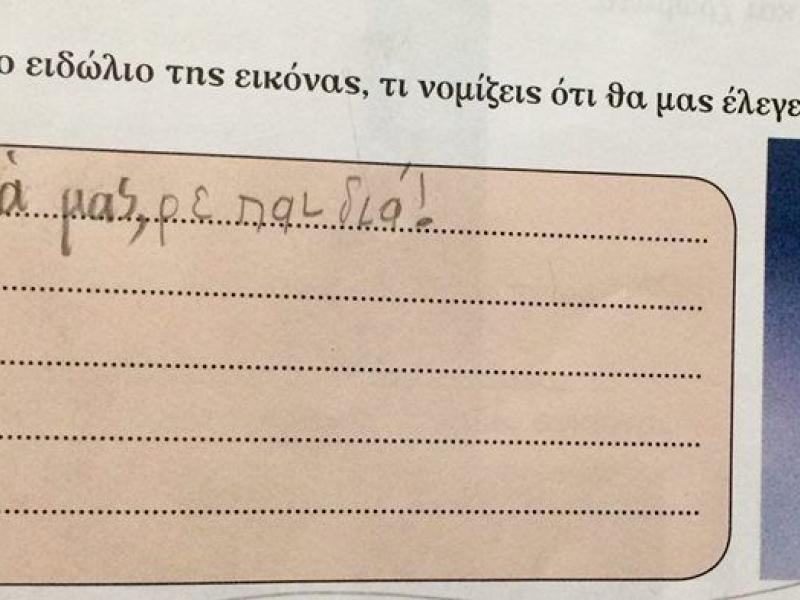 ο ειδώλιο της εικόνας, τι νομίζεις ότι θα μας έλεγε
ά μας, ρε παιδιά!